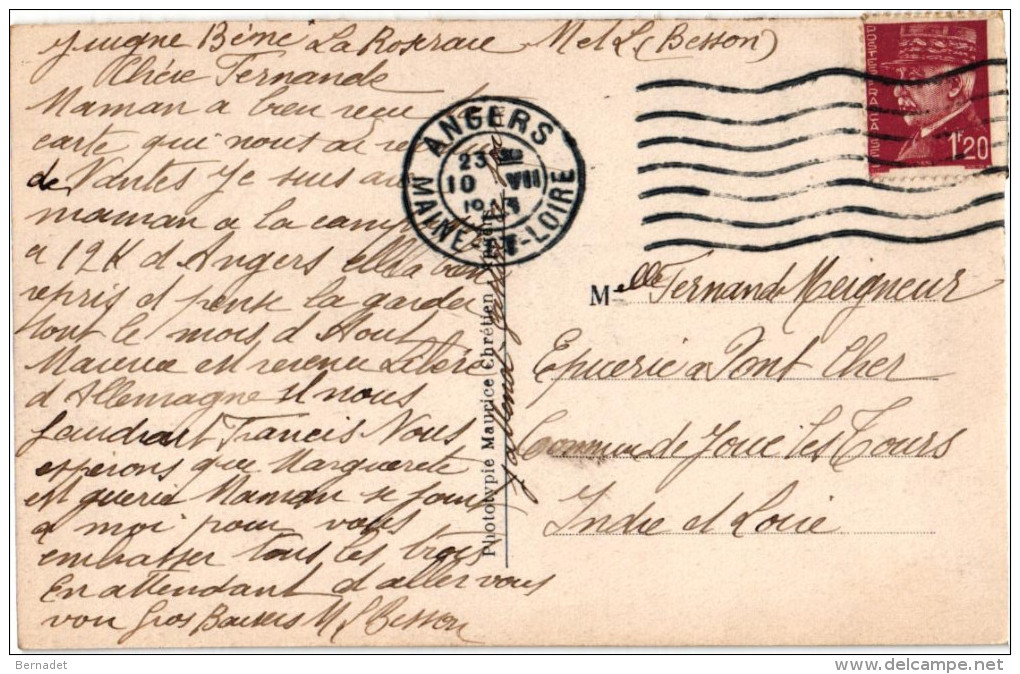 Juigne Béné La Roseraie M et L (Besson)
Chère Fernande
Maman a bien reçu ta
carte qui nous a
de Nantes Je suis avec
maman a la campagne
a 12 K d Angers elle a bien
repris et pense la garder
tout le mois d Aout
Maurice est revenu Libéré
d Allemagne il nous
faudrait Francis Nous
esperons que Marguerete
est guerie Maman se joint
a moi pour vous
embrasser tous les trois
En attendant d aller vous
voir Gros Baisers M L Besson
Phototypie Maurice Chrétien
ANGERS
23
10 VII
MAINE-ET-LOIRE
POSTES FRANÇAISES
1F20
Melle Fernande Meigneur
Epicerie a Pont Cher
Commune de Joue les Tours
Indre et Loire
Bernadet
www.delcampe.net